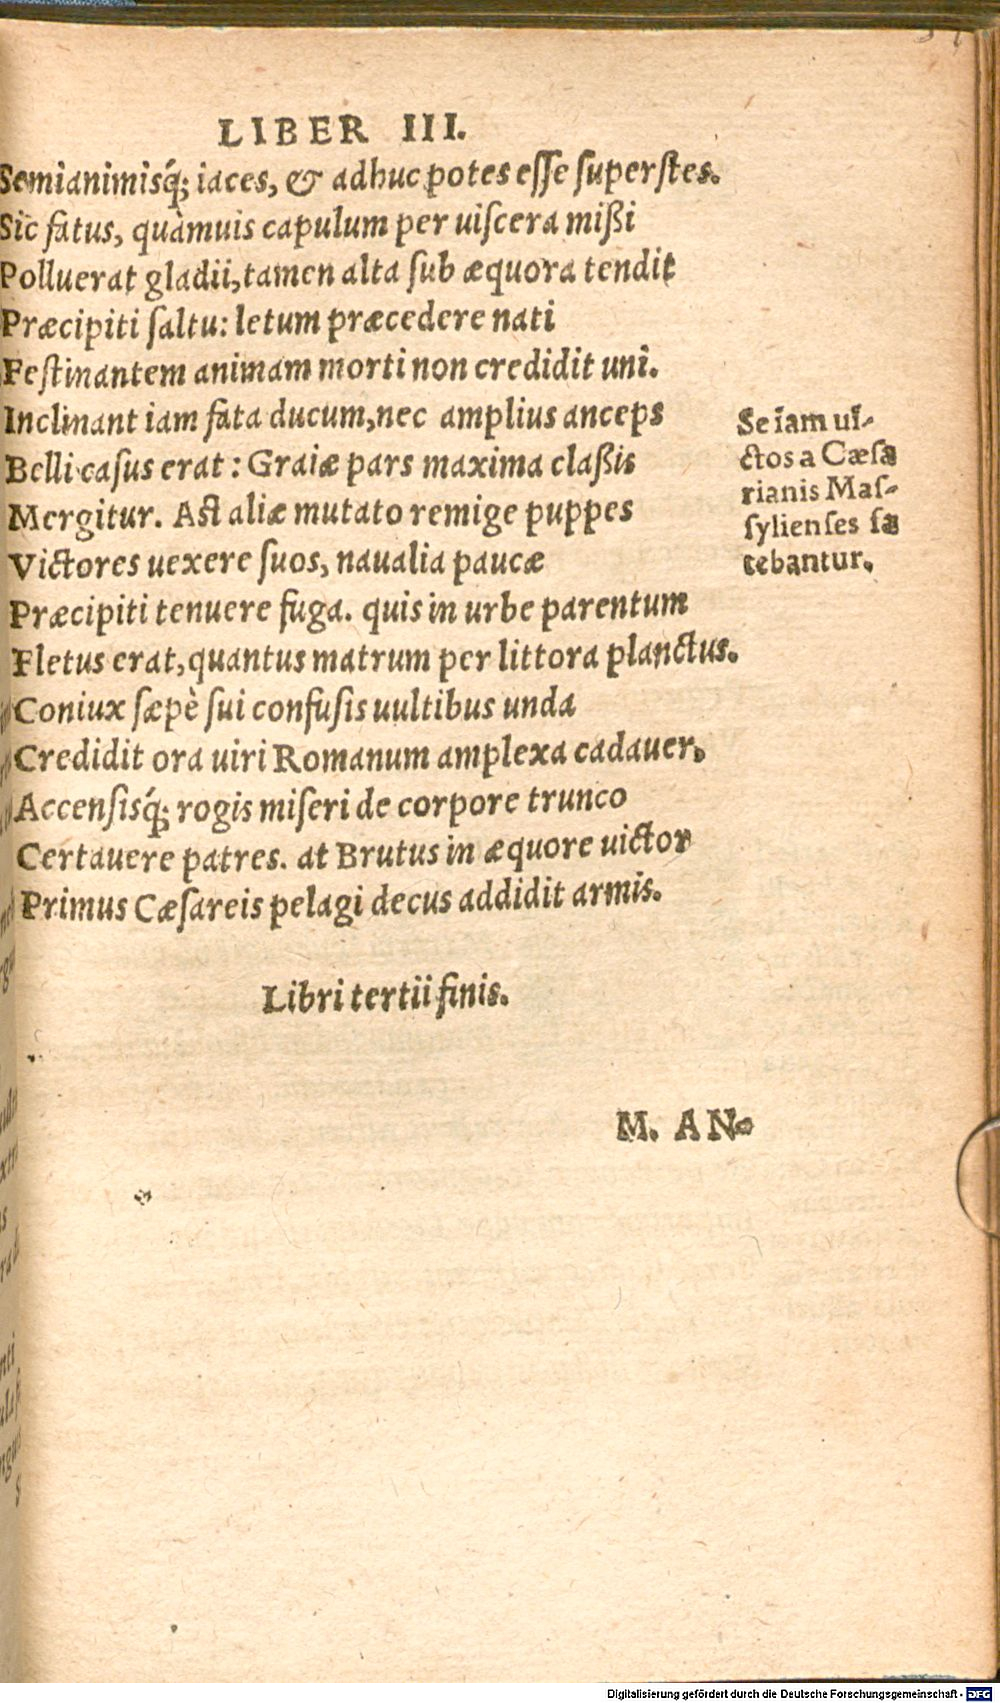 LIBER III.
Semianimisq́; iaces, & adhuc potes esse superstes.
Sic fatus, quàmuis capulum per uiscera mißi
Polluerat gladii, tamen alta sub æquora tendit
Præcipiti saltu: letum præcedere nati
Festinantem animam morti non credidit uni.
Inclinant iam fata ducum, nec amplius anceps
Belli casus erat: Graiæ pars maxima claßis
Mergitur. Ast aliæ mutato remige puppes
Victores uexere suos, naualia paucæ
Præcipiti tenuere fuga. quis in urbe parentum
Fletus erat, quantus matrum per littora planctus.
Coniux sæpè sui confusis uultibus unda
Credidit ora uiri Romanum amplexa cadauer,
Accensisq́; rogis miseri de corpore trunco
Certauere patres. at Brutus in æquore uictor
Primus Cæsareis pelagi decus addidit armis.
Se iam ui-
ctos a Cæsa
rianis Mas-
sylienses fa
tebantur.
Libri tertii finis.
M. AN-
Digitalisierung gefördert durch die Deutsche Forschungsgemeinschaft - DFG